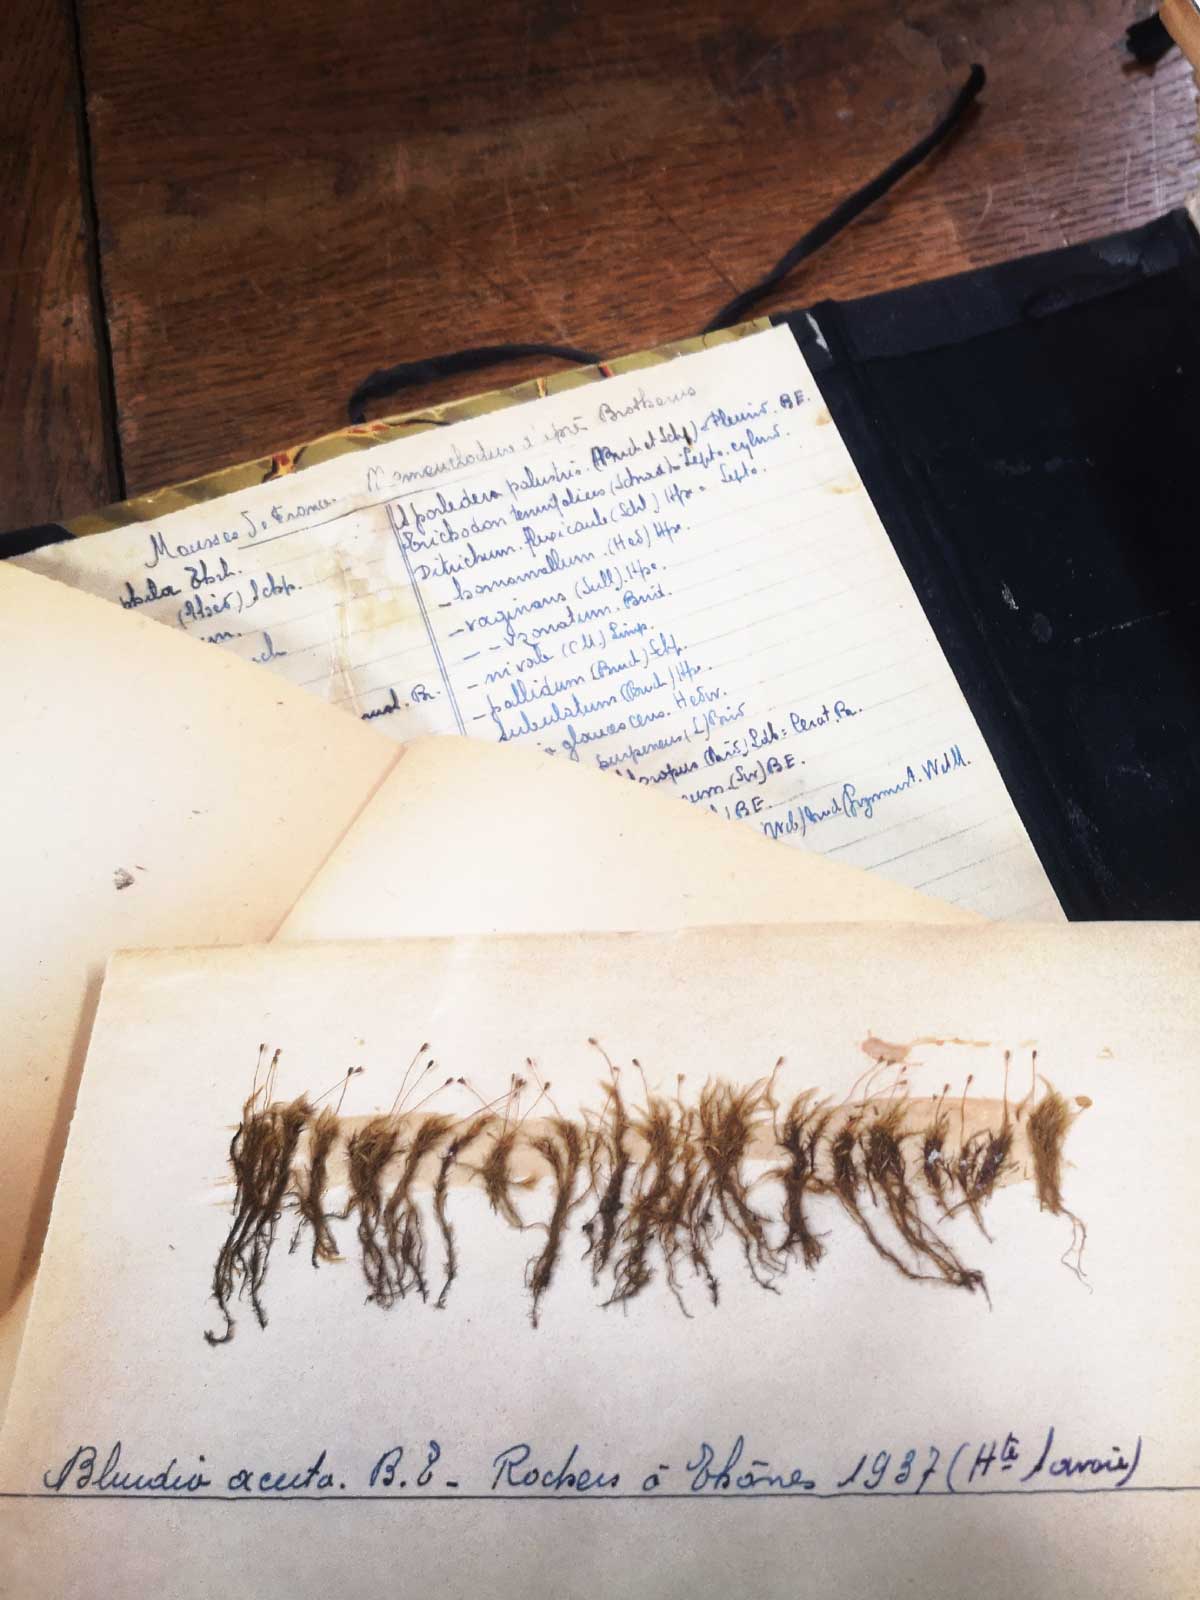 Mousses de France. Nomenclature d'après Brotherus
(Hed) Schp.
um.
ch
Br.
Aporledera palustris. (Bruch et Sch) = Pleurid. BE.
Trichodon tenuifolius (Schrad) = Lepto. cylind.
Ditrichum. flexicaule (Schl.) Hpe = Lepto.
- homomallum. (Hed) Hpe.
- vaginans (Sull). Hpe.
- - v. zonatum. Brid.
- nivale (C.M.) Limp.
- pallidum (Bruch) Schp.
subulatum (Bruch) Hpe.
glaucescens. Hedw.
purpureus (L) Brid
loropus (Brid) = Cerat. Pa.
eum. (Sw) B E.
) BE.
Web) W.M.
Blindia acuta. B.E - Rochers à Thônes 1937 (Hte Savoie)